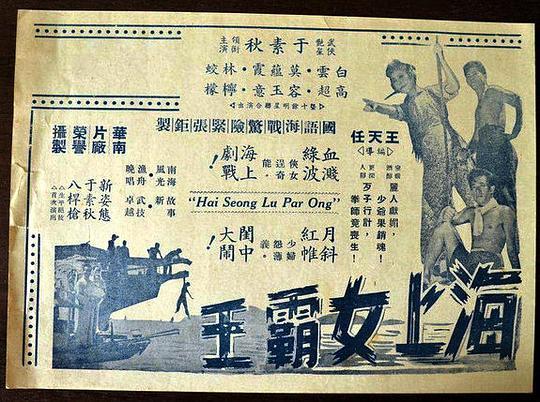 武俠艷星
于素秋
領銜主演
白雲・莫蘊霞・林蛟
高超・容玉意・檸檬
暨十餘明星聯合演出
國語海戰驚險緊張鉅製
王天任
編導
麗人獻媚，
少爺果銷魂！
歹子行計，
拳師竟喪生！
血濺綠波
俠女逞奇能
海上劇戰！
華南片廠榮譽攝製
南海風光
漁舟晚唱
故事新
武技卓越
新姿態
于素秋
八桿槍
"Hai Seong Lu Par Ong"
月斜紅帷
少婦怨薄義
閨中大鬧！
海上女霸王